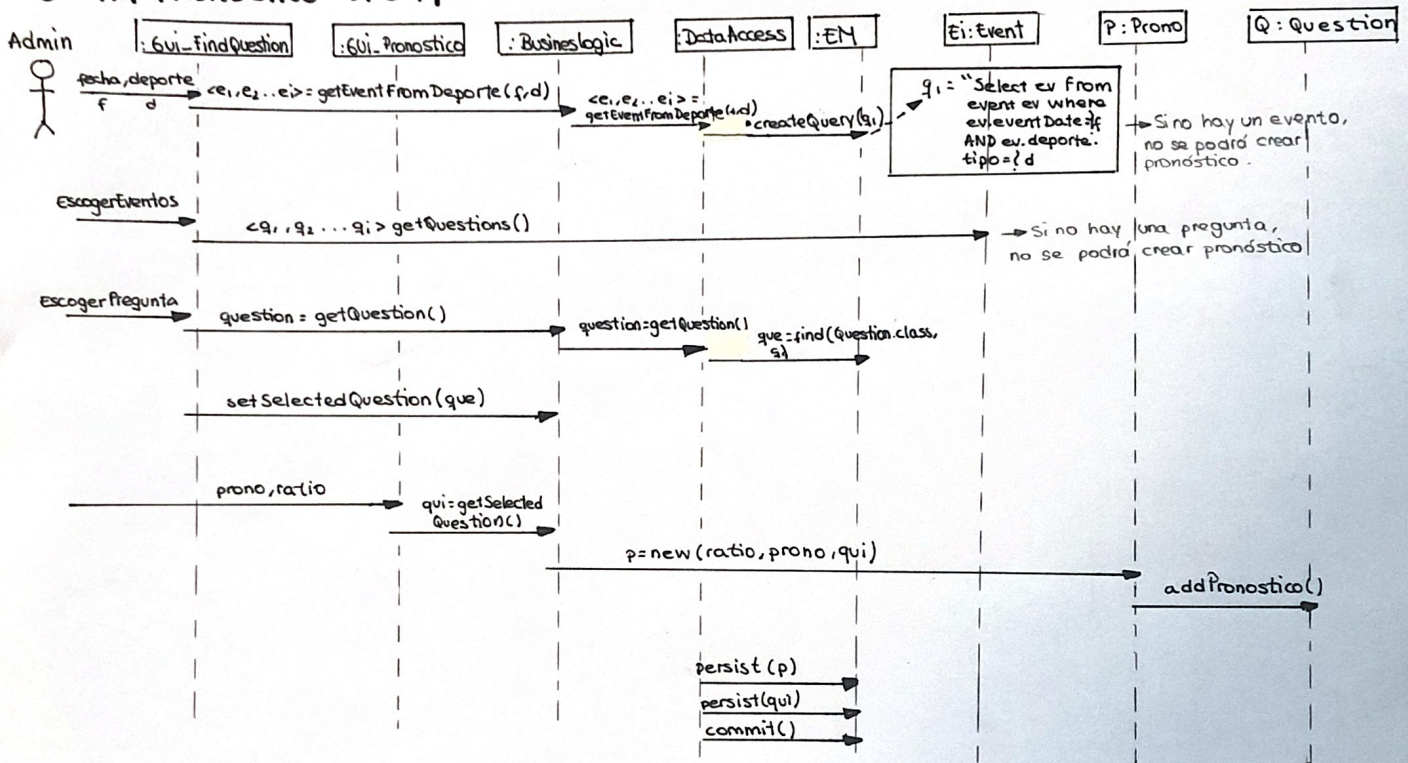 Admin
:Gui_FindQuestion
:Gui_Pronostico
:Busineslogic
:DataAccess
:EM
Ei:Event
P:Prono
Q:Question
fecha,deporte
f d
<e1,e2..ei>=getEventFromDeporte(f,d)
<e1,e2..ei>=
getEventFromDeporte(f,d)
createQuery(q1)
q1="Select ev From
event ev where
ev.eventDate=?f
AND ev.deporte.
tipo=?d
Si no hay un evento,
no se podrá crear
pronóstico.
EscogerEventos
<q1,q2...qi>getQuestions()
Si no hay una pregunta,
no se podrá crear pronóstico
EscogerPregunta
question=getQuestion()
question=getQuestion()
que=find(Question.class,
q)
setSelectedQuestion(que)
prono,ratio
qui=getSelected
Question()
p=new(ratio,prono,qui)
addPronostico()
persist(p)
persist(qui)
commit()